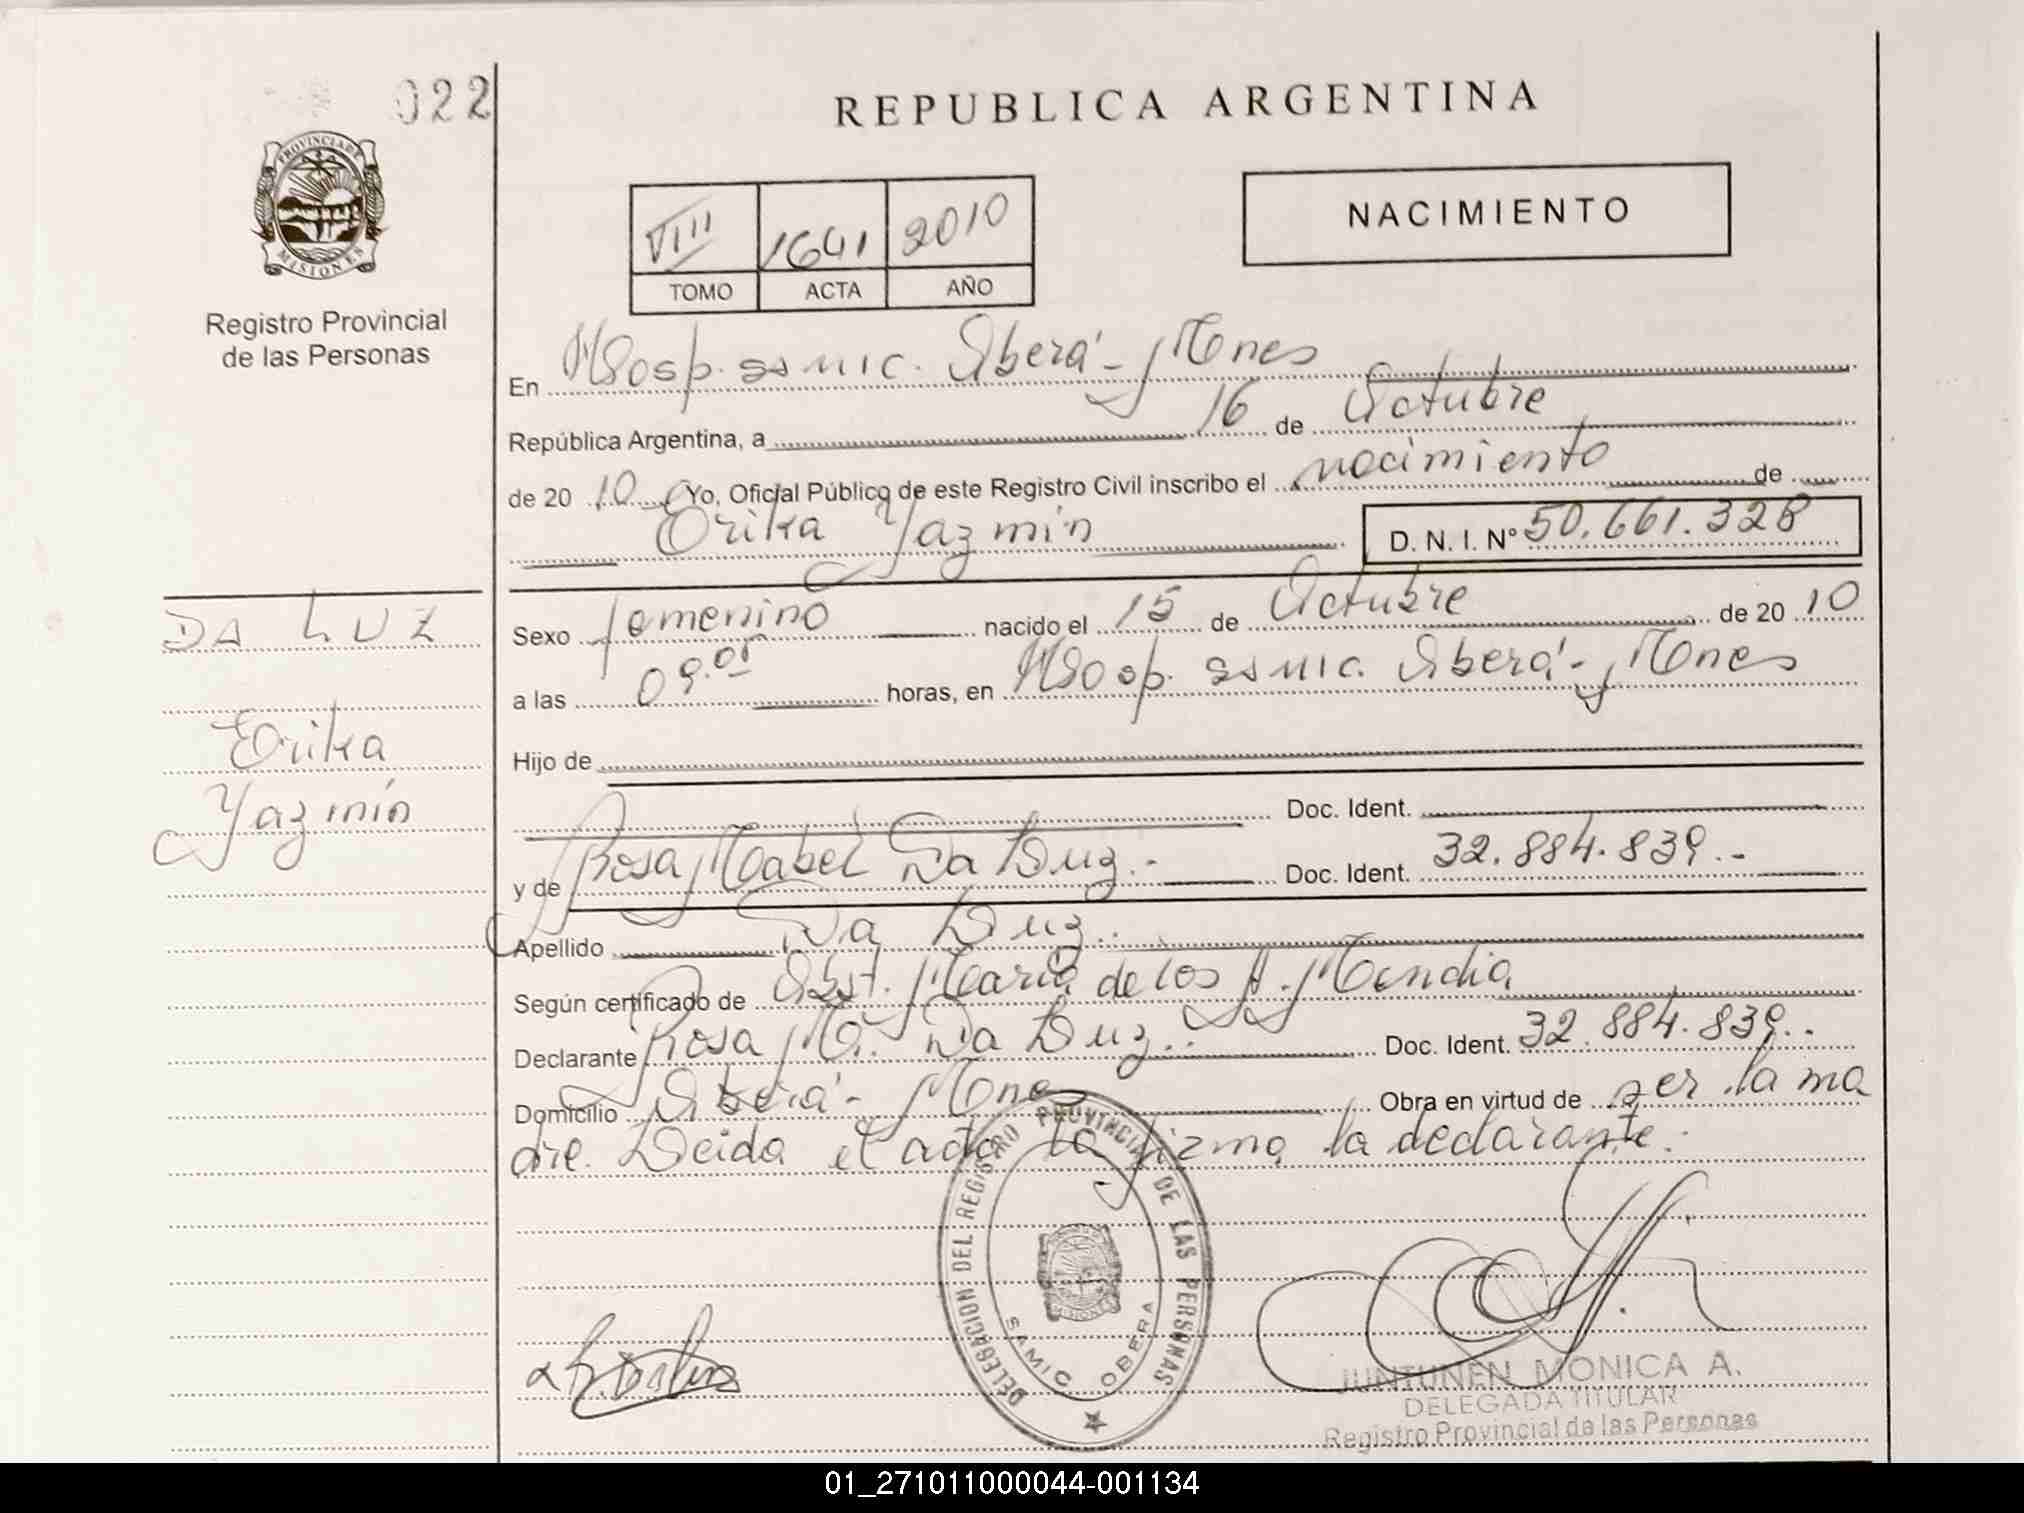 022
REPUBLICA ARGENTINA
PROVINCIA DE
MISIONES
Registro Provincial
de las Personas
VIII 1641 2010
TOMO ACTA AÑO
NACIMIENTO
En Hosp. SAMIC. Oberá - Mones
República Argentina, a 16 de Octubre
de 20 10 Yo, Oficial Público de este Registro Civil inscribo el nacimiento de
Erika Yazmín D. N. I. Nº 50.661.328
DA LUZ
Erika
Yazmín
Sexo femenino nacido el 15 de Octubre de 20 10
a las 09.05 horas, en Hosp. SAMIC. Oberá - Mones
Hijo de
Doc. Ident.
y de Rosa Mabel Da Luz.- Doc. Ident. 32.884.839.-
Apellido Da Luz..
Según certificado de Obst. María de los A. Mendia
Declarante Rosa M. Da Luz.. Doc. Ident. 32.884.839..
Domicilio Oberá - Mones Obra en virtud de ser la ma
dre. Leida el acta la firma la declarante.
DELEGACION DEL REGISTRO PROVINCIAL DE LAS PERSONAS
SAMIC OBERA
MISIONES
JUNTUNEN MONICA A.
DELEGADA TITULAR
Registro Provincial de las Personas
01_271011000044-001134